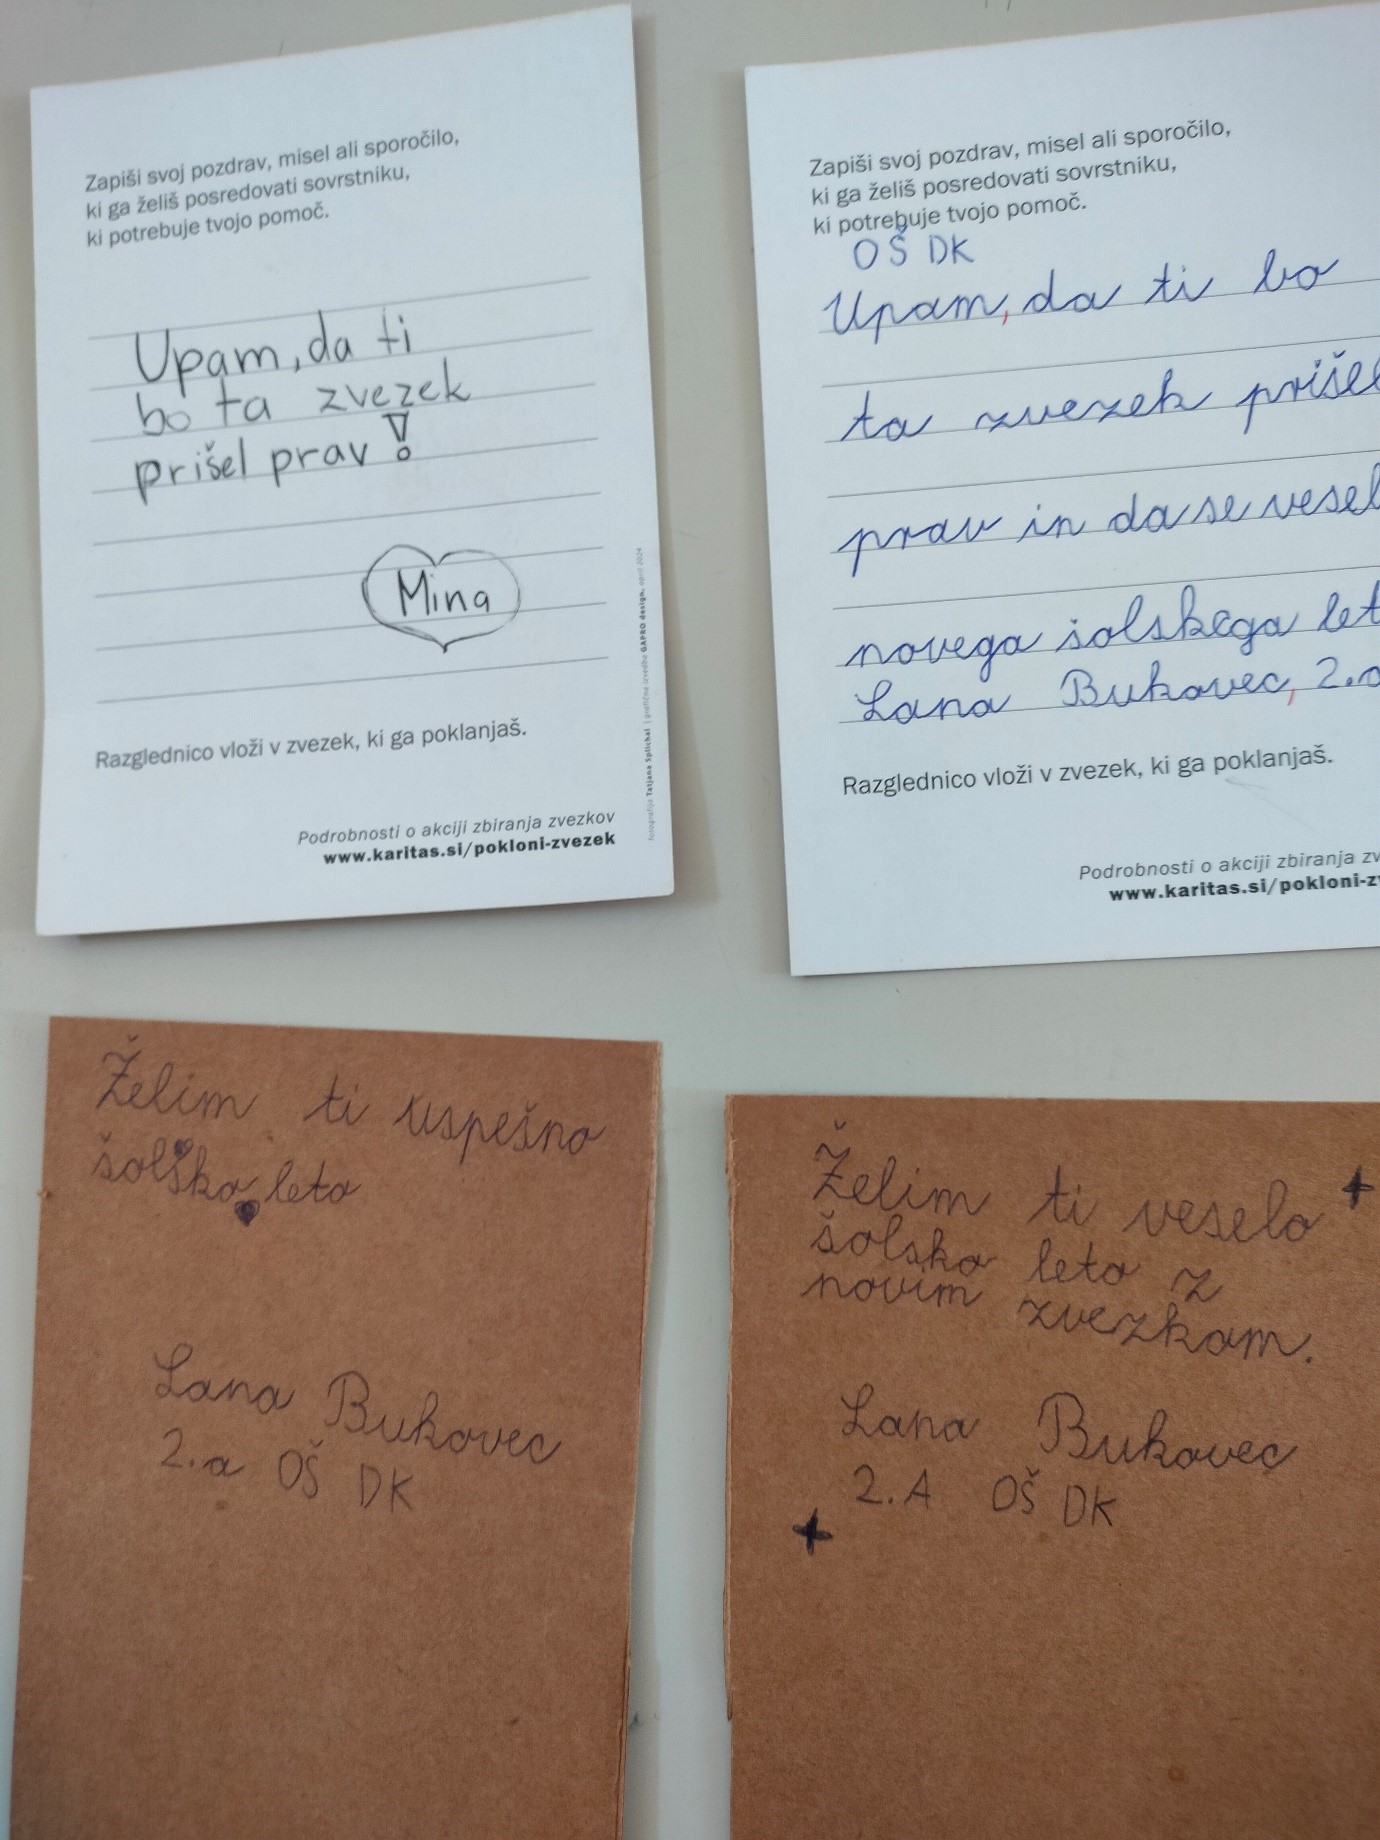 Zapiši svoj pozdrav, misel ali sporočilo,
ki ga želiš posredovati sovrstniku,
ki potrebuje tvojo pomoč.
Upam, da ti
bo ta zvezek
prišel prav!
Mina
Razglednico vloži v zvezek, ki ga poklanjaš.
Podrobnosti o akciji zbiranja zvezkov
www.karitas.si/pokloni-zvezek
fotografija Tatjana Splichal | grafična izvedba GAPRO design, april 2024
Zapiši svoj pozdrav, misel ali sporočilo,
ki ga želiš posredovati sovrstniku,
ki potrebuje tvojo pomoč.
OŠ DK
Upam, da ti bo
ta zvezek prišel
prav in da se vesel
novega šolskega let
Lana Bukovec, 2.a
Razglednico vloži v zvezek, ki ga poklanjaš.
Podrobnosti o akciji zbiranja zv
www.karitas.si/pokloni-zv
Želim ti uspešno
šolsko leto
Lana Bukovec
2.a OŠ DK
Želim ti veselo
šolsko leto z
novim zvezkom.
Lana Bukovec
2.A OŠ DK